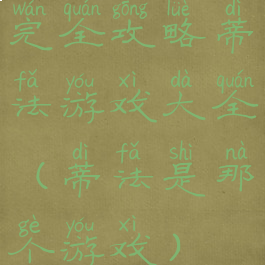 wán quán gōng lüè dì
完全攻略蒂
fǎ yóu xì dà quán
法游戏大全
dì fǎ shì nà
（蒂法是那
gè yóu xì
个游戏）